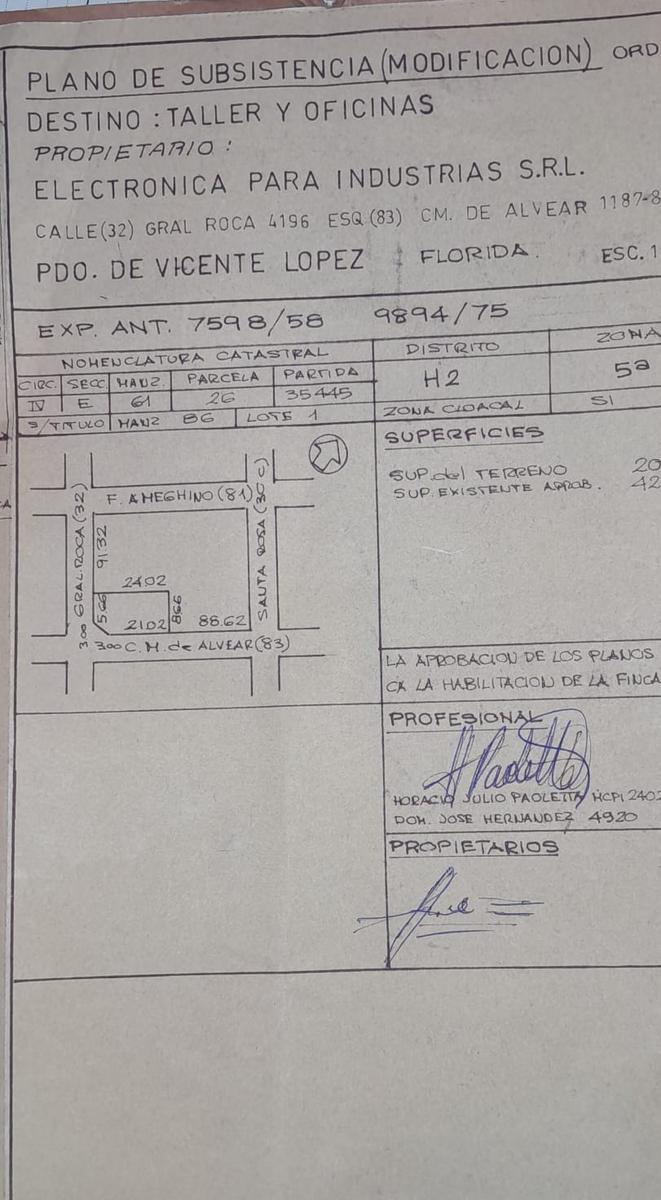 PLANO DE SUBSISTENCIA (MODIFICACION) ORD
DESTINO : TALLER Y OFICINAS
PROPIETARIO :
ELECTRONICA PARA INDUSTRIAS S.R.L.
CALLE (32) GRAL ROCA 4196 ESQ (83) CM. DE ALVEAR 1187-8
PDO. DE VICENTE LOPEZ FLORIDA. ESC. 1
EXP. ANT. 7598/58 9894/75
NOMENCLATURA CATASTRAL DISTRITO ZONA
CIRC. SECC. MANZ. PARCELA PARTIDA H2 5a
IV E 61 26 35445 ZONA CLOACAL SI
S/TITULO MANZ 86 LOTE 1
SUPERFICIES
SUP. del TERRENO 20
SUP. EXISTENTE APROB. 42
F. AMEGHINO (81)
GRAL. ROCA (32)
3.00
SANTA ROSA (30 C)
9132
2402
5.66
866
2102 88.62
300 C. M. de ALVEAR (83)
LA APROBACION DE LOS PLANOS
CA LA HABILITACION DE LA FINCA
PROFESIONAL
HORACIO JULIO PAOLETTA MCPI 2402
DOM. JOSE HERNANDEZ 4920
PROPIETARIOS